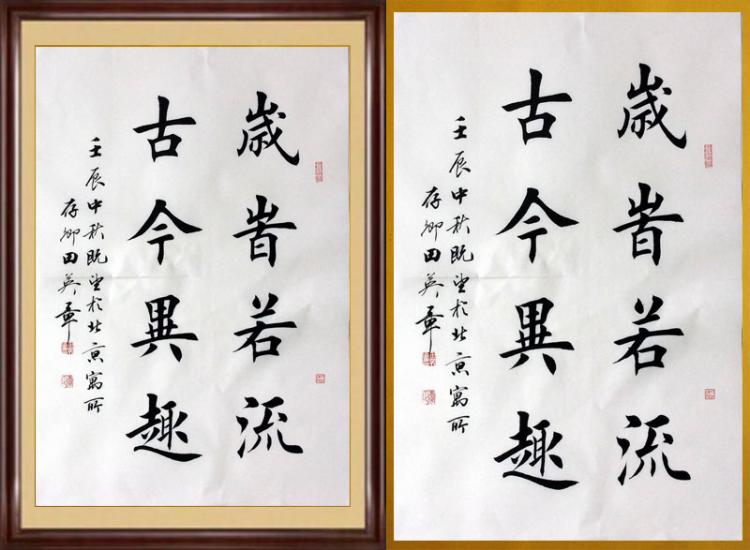 嵗旹若流
古今異趣
壬辰中秋既望於北京寓所
存卿田英章
嵗旹若流
古今異趣
壬辰中秋既望於北京寓所
存卿田英章